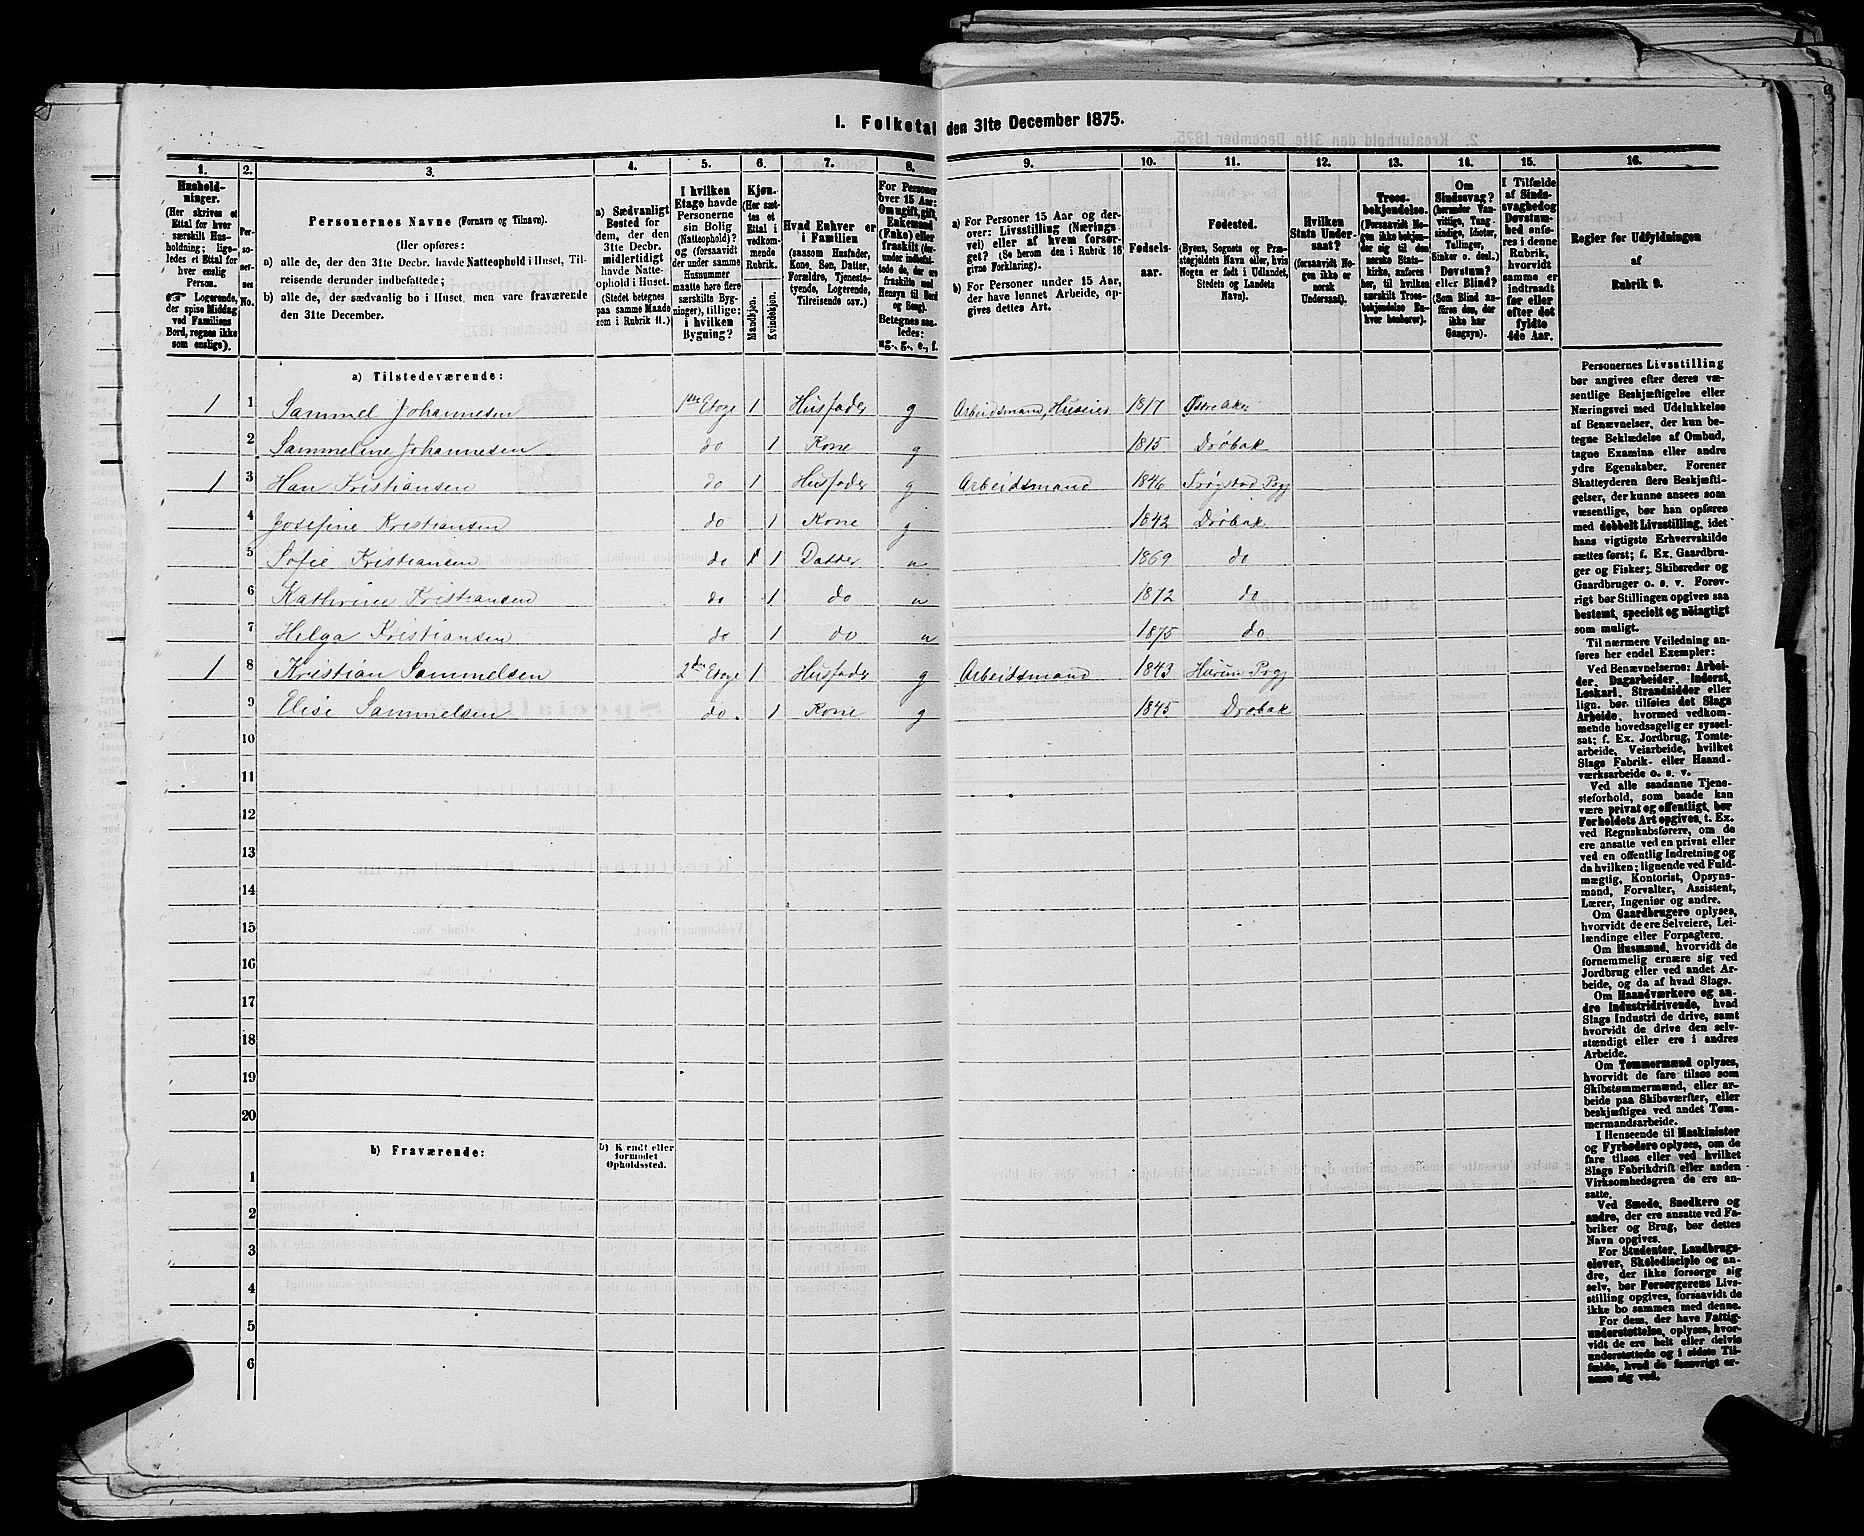 1. Folketal den 31te December 1875.
1. 2. 3. 4. 5. 6. 7. 8. 9. 10. 11. 12. 13. 14. 15. 16.
Hushold-
ninger.
(Her skrives et
Ettal for hver
særskilt Hus-
holdning; lige-
ledes et Ettal for
hver enslig
Person.
Logerende,
der spise Middag
ved Familiens
Bord, regnes ikke
som enslige).
Per-
so-
ner-
nes
No.
Personernes Navne (Fornavn og Tilnavn).
(Her opføres:
a) alle de, der den 31te Decbr. havde Natteophold i Huset, Til-
reisende derunder indbefattede;
b) alle de, der sædvanlig bo i Huset, men vare fraværende
den 31te December.
a) Sædvanligt
Bosted for
dem, der den
31te Decbr.
midlertidigt
havde Natte-
ophold i Huset.
(Stedet betegnes
paa samme Maade
som i Rubrik 11.)
I hvilken
Etage havde
Personerne
sin Bolig
(Natteophold)?
og (forsaavidt
der under samme
Husnummer
maatte høre flere
særskilte Byg-
ninger), tillige:
i hvilken
Bygning?
Kjøn.
(Her sæt-
tes et
Ettal i
vedkom-
mende
Rubrik.
Mandkjøn.
Kvindekjøn.
Hvad Enhver er
i Familien
(saasom Husfader,
Kone, Søn, Datter,
Forældre, Tjeneste-
tyende, Logerende,
Tilreisende osv.)
For Personer
over 15 Aar:
Om ugift, gift,
Enkemand
(Enke) eller
fraskilt (der-
under indbefat-
tede de, der ere
fraskilte med
Hensyn til Bord
og Seng).
Betegnes saa-
ledes:
ug., g., e., f.
a) For Personer 15 Aar og der-
over: Livsstilling (Nærings-
vei) eller af hvem forsør-
get? (Se herom den i Rubrik 16
givne Forklaring).
b) For Personer under 15 Aar,
der have lønnet Arbeide, op-
gives dettes Art.
Fødsels-
aar.
Fødested.
(Byens, Sognets og Præ-
stegjeldets Navn eller, hvis
Nogen er født i Udlandet,
Stedets og Landets
Navn).
Hvilken
Stats Under-
saat?
(forsaavidt No-
gen ikke er
norsk
Undersaat).
Troes-
bekjendelse.
(Forsaavidt No-
gen ikke bekjen-
der sig til den
norske Stats-
kirke, anføres
her, til hvilken
særskilt Troes-
bekjendelse En-
hver henhører).
Om
Sindssvag?
(herunder Van-
vittige, Tung-
sindige, Idioter,
Tullinger,
Sinker o. desl.)
Døvstum?
eller Blind?
(Som Blind an-
føres den, der
ikke har
Gangsyn).
I Tilfælde
af Sinds-
svaghed og
Døvstum-
hed anfø-
res i denne
Rubrik,
hvorvidt
samme er
indtraadt
før eller
efter det
fyldte
4de Aar.
Regler for Udfyldningen
af
Rubrik 9.
a) Tilstedeværende:
1 1 Sammel Johannesen 1ste Etage 1 Husfader g Arbeidsmand, Huseier 1817 Østre Aker
2 Sammeline Johannesen do 1 Kone g 1815 Drøbak
1 3 Han Kristiansen do 1 Husfader g Arbeidsmand 1846 Trøgstad Pgj
4 Josefine Kristiansen do 1 Kone g 1842 Drøbak
5 Sofie Kristiansen do 1 Datter u 1869 do
6 Kathrine Kristiansen do 1 do u 1872 do
7 Helga Kristiansen do 1 do u 1875 do
1 8 Kristian Sammelsen 2den Etage 1 Husfader g Arbeidsmand 1843 Hurum Pgj
9 Elise Sammelsen do. 1 Kone g 1845 Drøbak
10
11
12
13
14
15
16
17
18
19
20
b) Fraværende:
b) Kjendt eller
formodet
Opholdssted.
1
2
3
4
5
6
Personernes Livsstilling
bør angives efter deres væ-
sentlige Beskjæftigelse eller
Næringsvei med Udelukkelse
af Benævnelser, der kun be-
tegne Beklædelse af Ombud,
tagne Examina eller andre
ydre Egenskaber. Forener
Skatteyderen flere Beskjæfti-
gelser, der kunne ansees som
væsentlige, bør han opføres
med dobbelt Livsstilling, idet
hans vigtigste Erhvervskilde
sættes først; f. Ex. Gaardbru-
ger og Fisker; Skibsreder og
Gaardbruger o. s. v. Forøv-
rigt bør Stillingen opgives saa
bestemt, specielt og nøiagtigt
som muligt.
Til nærmere Veiledning an-
føres her endel Exempler:
Ved Benævnelserne: Arbei-
der, Dagarbeider, Inderst,
Løskarl, Strandsidder eller
lign. bør tilføies det Slags
Arbeide, hvormed vedkom-
mende hovedsagelig er syssel-
sat; f. Ex. Jordbrug, Tomte-
arbeide, Veiarbeide, hvilket
Slags Fabrik- eller Haand-
værksarbeide o. s. v.
Ved alle saadanne Tjene-
steforhold, som baade kan
være privat og offentligt, bør
Forholdets Art opgives, t. Ex.
ved Regnskabsførere, om de
ere ansatte ved en privat eller
ved en offentlig Indretning og
da hvilken; lignende ved Fuld-
mægtig, Kontorist, Opsyns-
mand, Forvalter, Assistent,
Lærer, Ingeniør og andre.
Om Gaardbrugere oplyses,
hvorvidt de ere Selveiere, Lei-
lændinge eller Forpagtere.
Om Husmænd, hvorvidt de
fornemmelig ernære sig ved
Jordbrug eller ved andet Ar-
beide, og da af hvad Slags.
Om Haandværkere og an-
dre Industridrivende, hvad
Slags Industri de drive, samt
hvorvidt de drive den selv-
stændigt eller ere i andres
Arbeide.
Om Tømmermænd oplyses,
hvorvidt de fare tilsøs som
Skibstømmermænd, eller ar-
beide paa Skibsværfter, eller
beskjæftiges ved andet Tøm-
mermandsarbeide.
I Henseende til Maskinister
og Fyrbødere oplyses, om de
fare tilsøs eller ved hvilket
Slags Fabrikdrift eller anden
Virksomhedsgren de ere an-
satte.
Ved Smede, Snedkere og
andre, der ere ansatte ved Fa-
briker og Brug, bør dettes
Navn opgives.
For Studenter, Landbrugs-
elever, Skoledisciple og an-
dre, der ikke forsørge sig
selv, bør Forsørgerens Livs-
stilling opgives, forsaavidt de
ikke bo sammen med denne.
For dem, der have Fattig-
understøttelse, oplyses, hvor-
vidt de ere helt eller delvis
understøttede og i sidste Til-
fælde, hvad de forøvrigt er-
nære sig ved.